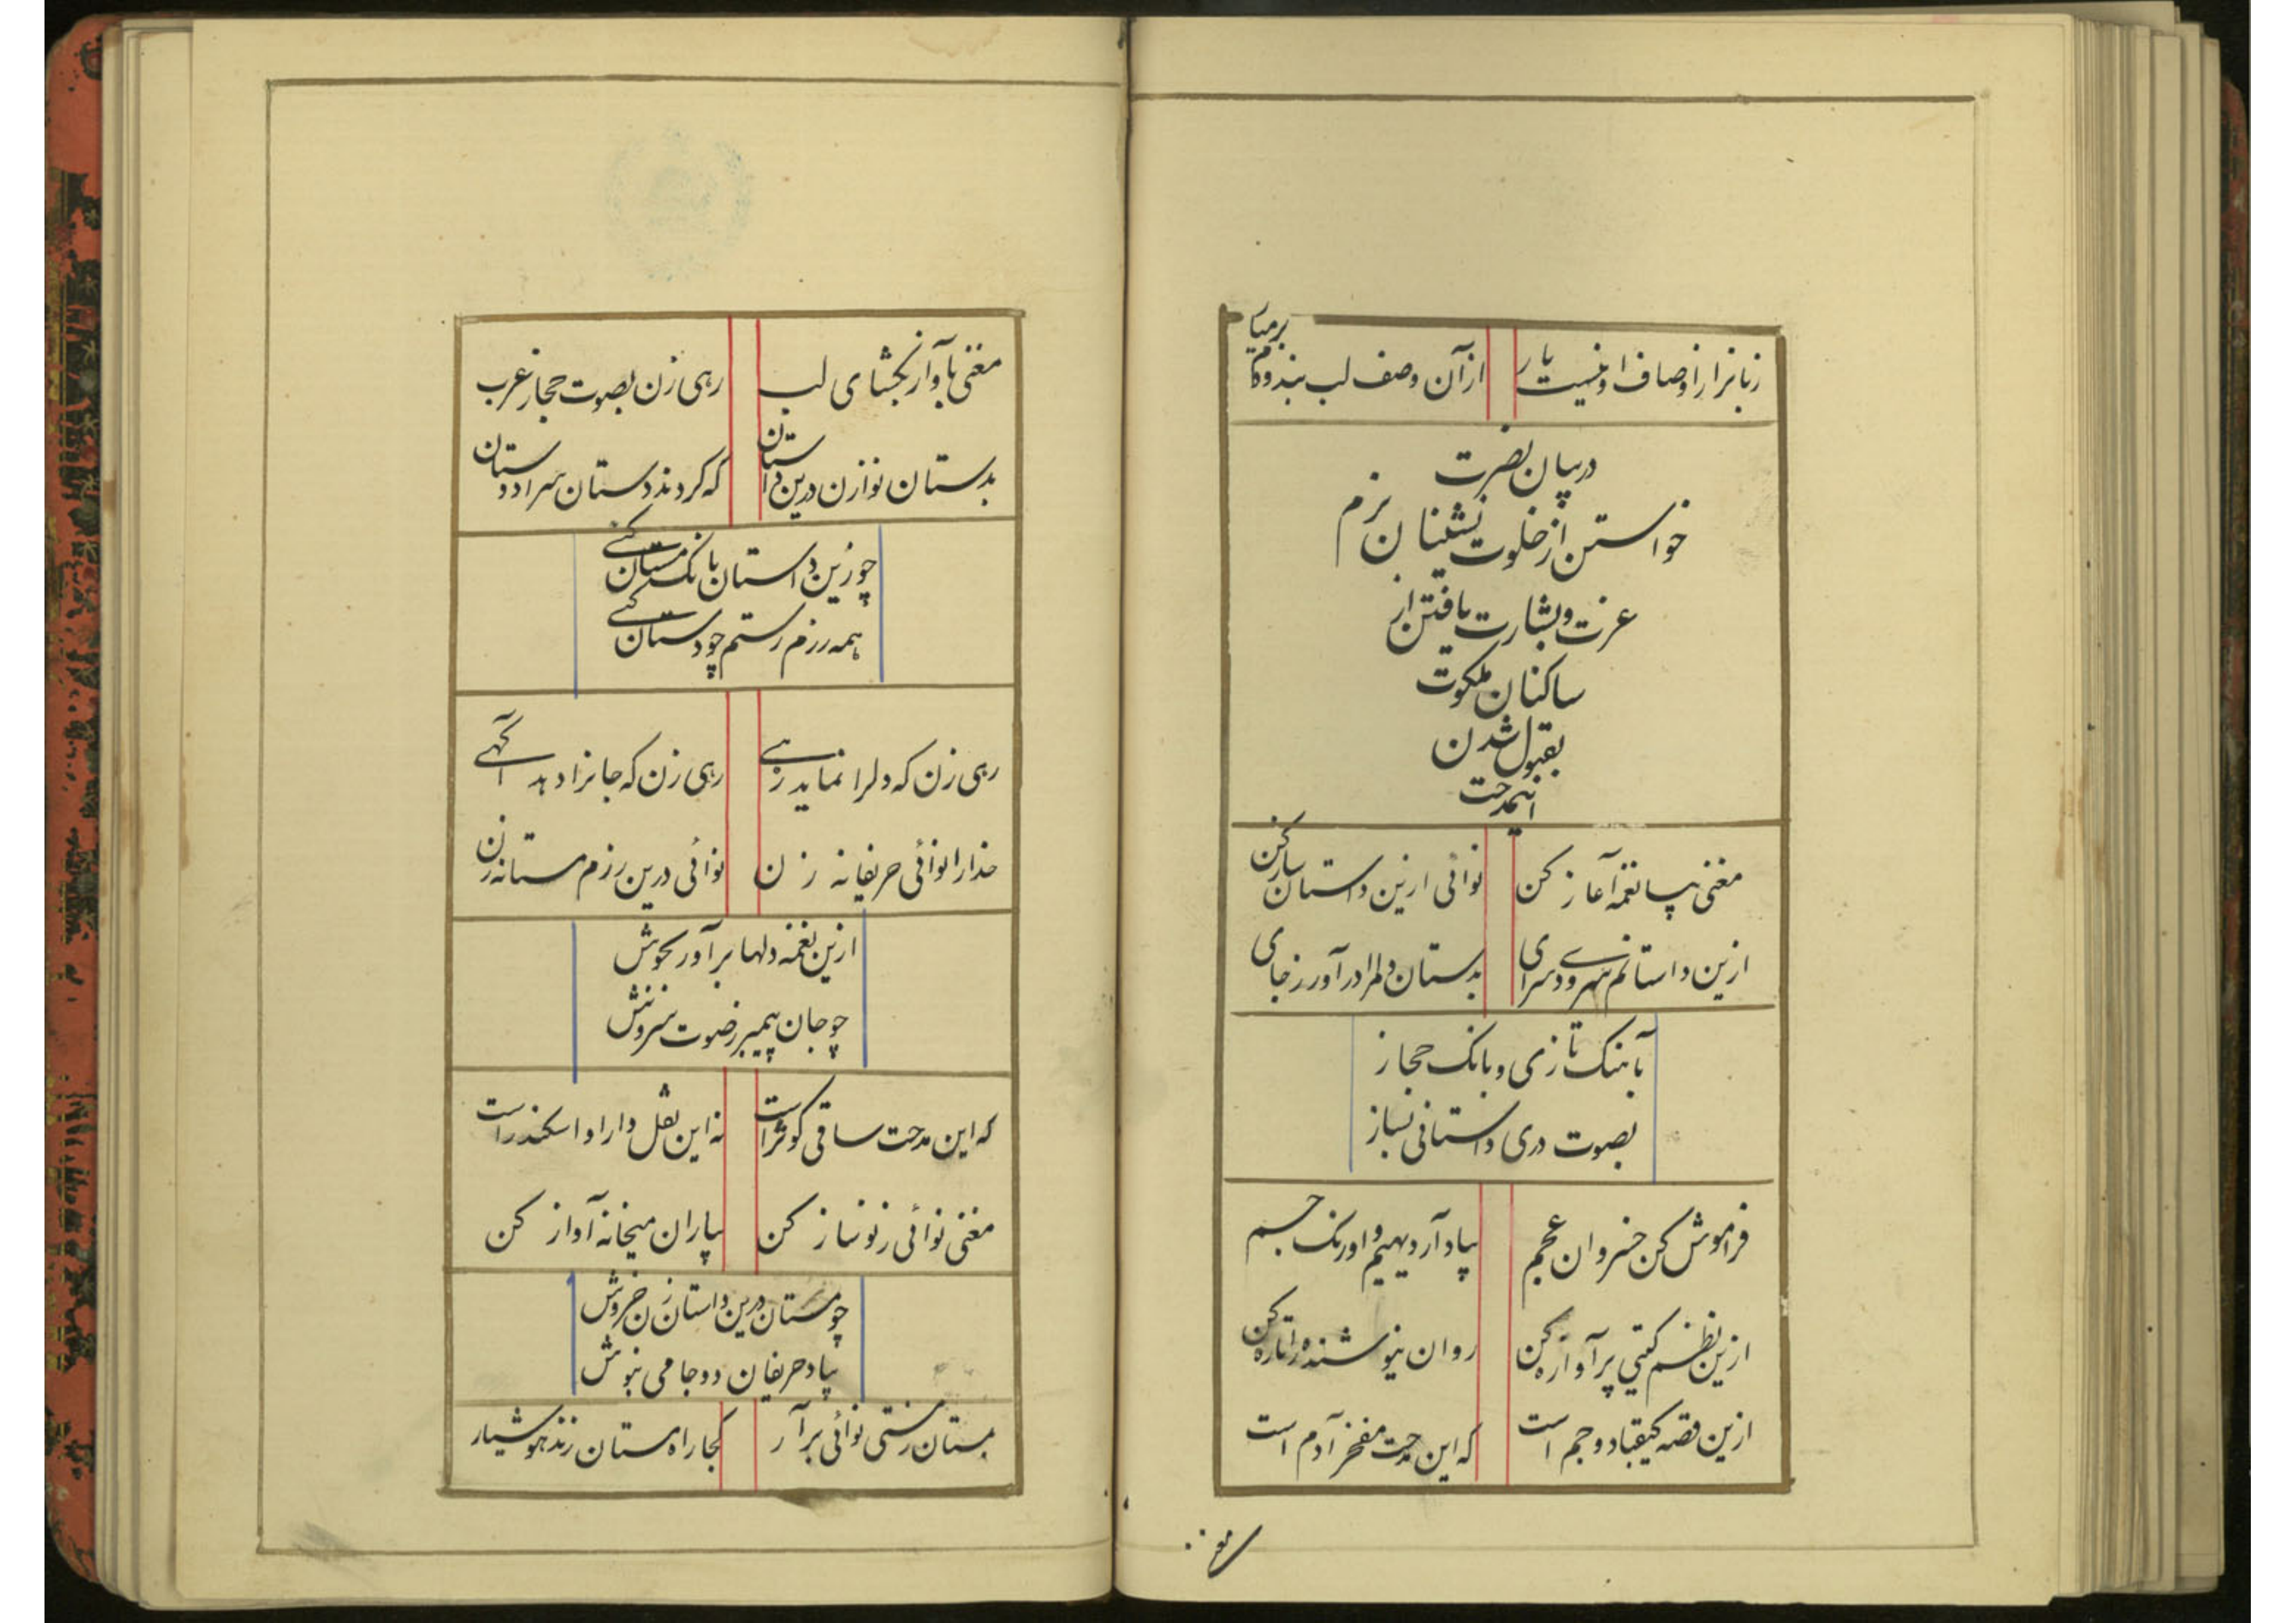 زبانرا ز اوصاف او نیست یارا
از آن وصف لب بند و دم برمیا
در بیان نصرت
خواستن از خلوت نشینان بزم
عزت و بشارت یافتن از
ساکنان ملکوت
بقبول شدن
اینمدحت
مغنی بیا نغمه آغاز کن
نوائی ازین داستان ساز کن
ازین داستانم سرودی سرای
بدستان دلم را در آور ز جای
بآهنک تازی و بانک حجاز
بصوت دری داستانی بساز
فراموش کن خسروان عجم
بیاد آر دیهیم و اورنک جم
ازین نظم کیتی پر آوازه کن
روان نیوشنده را تازه کن
ازین قصه کیقباد و جم است
که این مدحت مفخر آدم است
مغنی
مغنی بآواز بکشای لب
رهی زن بصوت حجاز عرب
بدستان نوا زن درین داستان
که کردند دستان سرا دوستان
چو زین داستان بانک مستان کنی
همه رزم رستم چو دستان کنی
رهی زن که دلرا نماید رهی
رهی زن که جانرا دهد آکهی
خدا را نوائی حریفانه زن
نوائی درین رزم مستانه زن
ازین نغمه دلها بر آور بجوش
چو جان پیمبر ز صوت سروش
که این مدحت ساقی کوثر است
نه این نقل دارا و اسکندر است
مغنی نوائی ز نو ساز کن
بیاران میخانه آواز کن
چو مستان درین داستان زن خروش
بیاد حریفان دو جامی بنوش
بمستان ز مستی نوائی بر آر
کجا راه مستان زند هوشیار